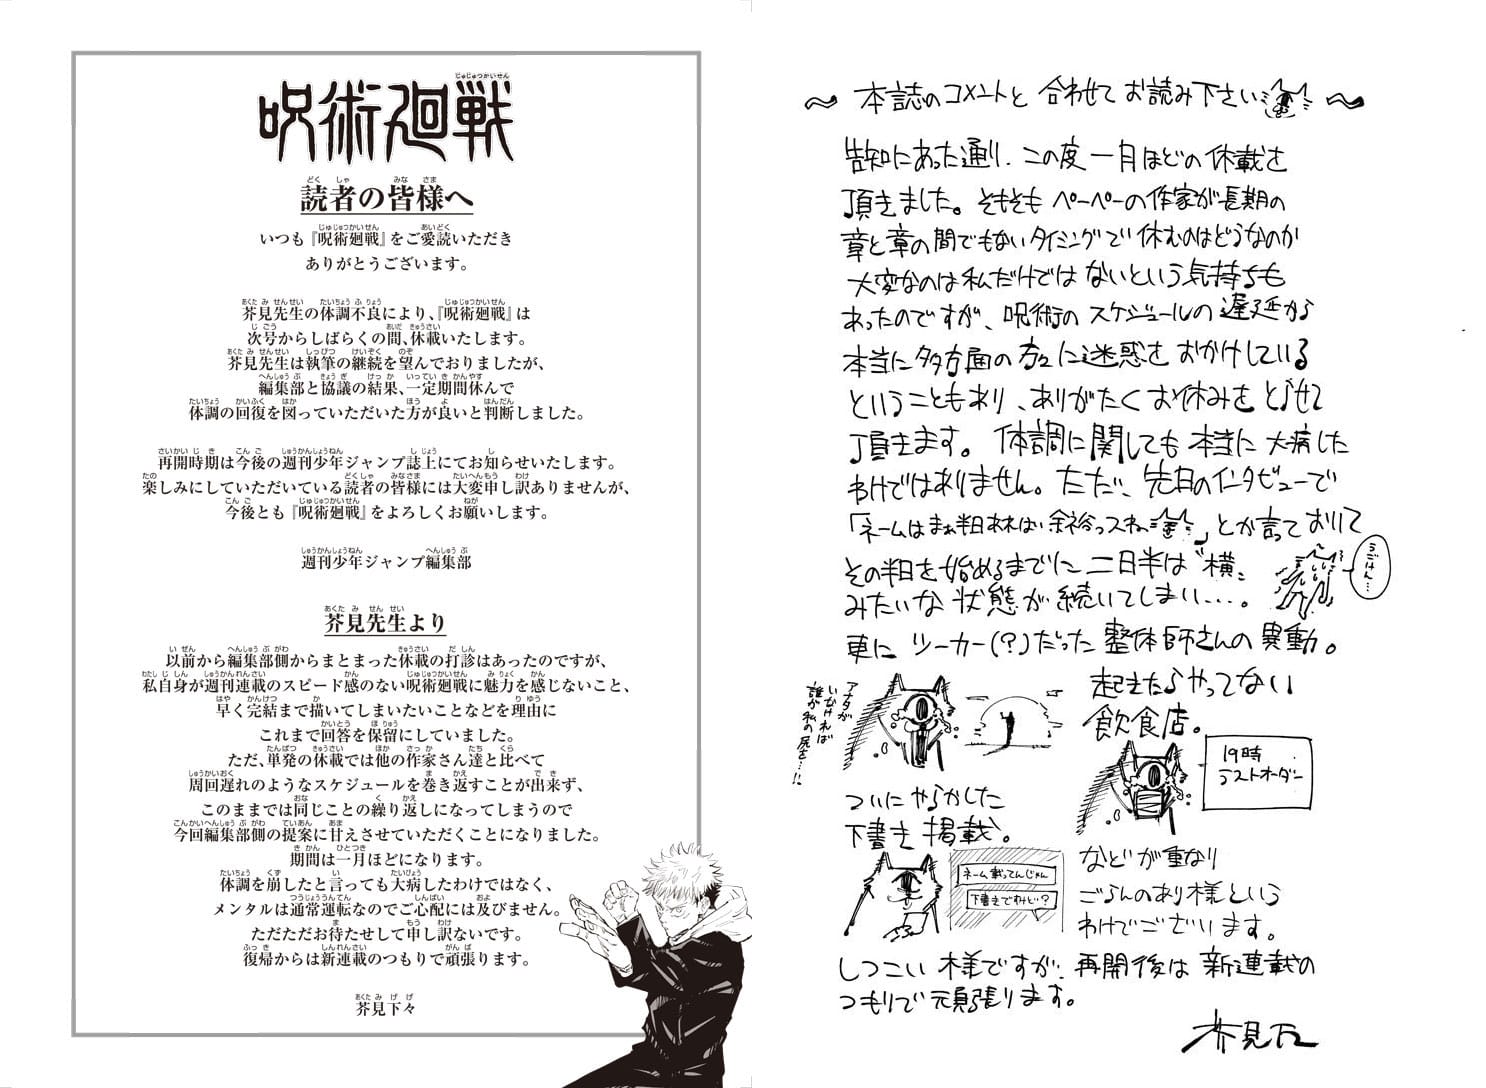 呪術廻戦
読者の皆様へ
いつも『呪術廻戦』をご愛読いただき
ありがとうございます。
芥見先生の体調不良により、『呪術廻戦』は
次号からしばらくの間、休載いたします。
芥見先生は執筆の継続を望んでおりましたが、
編集部と協議の結果、一定期間休んで
体調の回復を図っていただいた方が良いと判断しました。
再開時期は今後の週刊少年ジャンプ誌上にてお知らせいたします。
楽しみにしていただいている読者の皆様には大変申し訳ありませんが、
今後とも『呪術廻戦』をよろしくお願いします。
週刊少年ジャンプ編集部
芥見先生より
以前から編集部側からまとまった休載の打診はあったのですが、
私自身が週刊連載のスピード感のない呪術廻戦に魅力を感じないこと、
早く完結まで描いてしまいたいことなどを理由に
これまで回答を保留にしていました。
ただ、単発の休載では他の作家さん達と比べて
周回遅れのようなスケジュールを巻き返すことが出来ず、
このままでは同じことの繰り返しになってしまうので
今回編集部側の提案に甘えさせていただくことになりました。
期間は一月ほどになります。
体調を崩したと言っても大病したわけではなく、
メンタルは通常運転なのでご心配には及びません。
ただただお待たせして申し訳ないです。
復帰からは新連載のつもりで頑張ります。
芥見下々
〜 本誌のコメントと 合わせて お読み下さい 〜
告知にあった通り、この度 一月ほどの休載を
頂きました。そもそも ペーペーの作家が長期の
章と章の間でもないタイミングで 休むのはどうなのか
大変なのは私だけでは ないという気持ちも
あったのですが、呪術の スケジュールの 遅延から
本当に多方面の方々に迷惑を おかけしている
ということもあり、ありがたく お休みを とらせて
頂きます。 体調に関しても 本当に 大病した
わけではありません。ただ、先日のインタビューで
「ネームはまぁ半日あれば 余裕っスね」とか言って おいて
その半日を始めるまでに 二日半は〝横〟
みたいな 状態が 続いてしまい…。
うごけん…
更に ツーカー(?)だった 整体師さんの 異動。
アナタが
いなければ
誰が私の尻を…!!
起きたらやってない
飲食店。
19時
ラストオーダー
ついに やらかした
下書き 掲載。
ネーム載ってんじゃん
下書きですけど?
などが重なり
ごらんのあり様という
わけでございます。
しつこい 様ですが、再開後は 新連載の
つもりで 頑張ります。
芥見下々